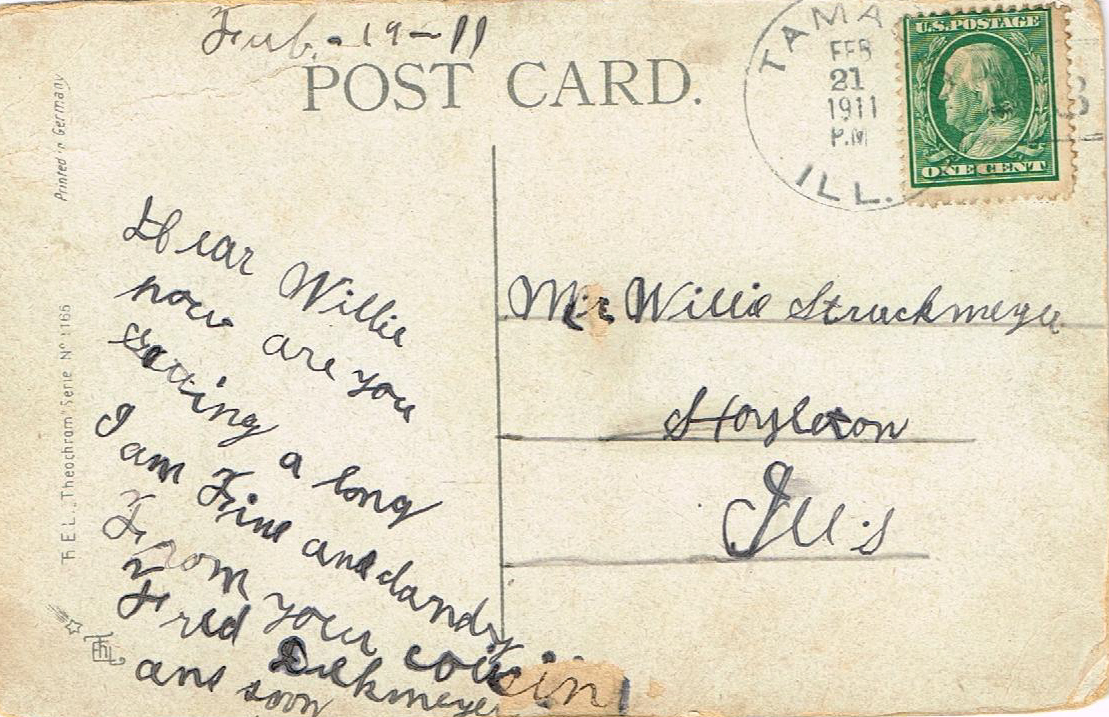 Feb. - 19 - 11
POST CARD.
TAMA
FEB
21
1911
P.M
ILL.
U.S. POSTAGE
ONE CENT
Printed in Germany
Th. E. L. „Theochrom" Serie Nº 1166
Dear Willie
how are you
getting a long
I am Fine and dandy
From your cousin
Fred Dickmeyer
ans soon
Mr Willie Struckmeyer
Hoyleton
Ill.s